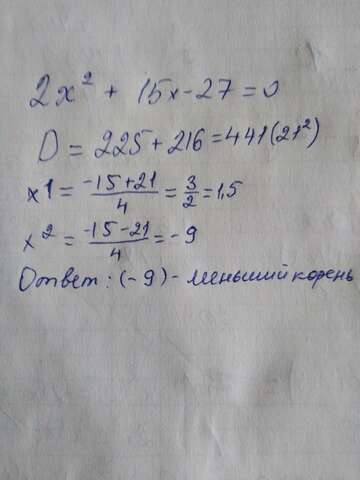 2x² + 15x - 27 = 0
D = 225 + 216 = 441 (21²)
x1 = (-15+21)/4 = 3/2 = 1,5
x2 = (-15-21)/4 = -9
Ответ: (-9) - меньший корень